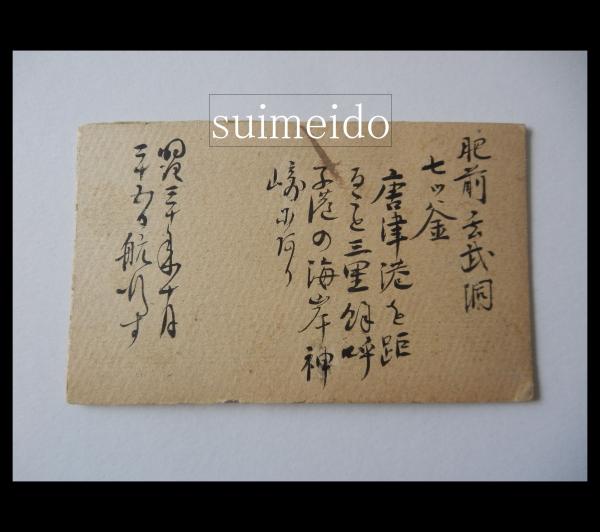 suimeido
肥前玄武洞
七ツ釜
唐津港を距
ること三里餘呼
子港の海岸神
崎にあり
明治三十年十月
三十五日航行す